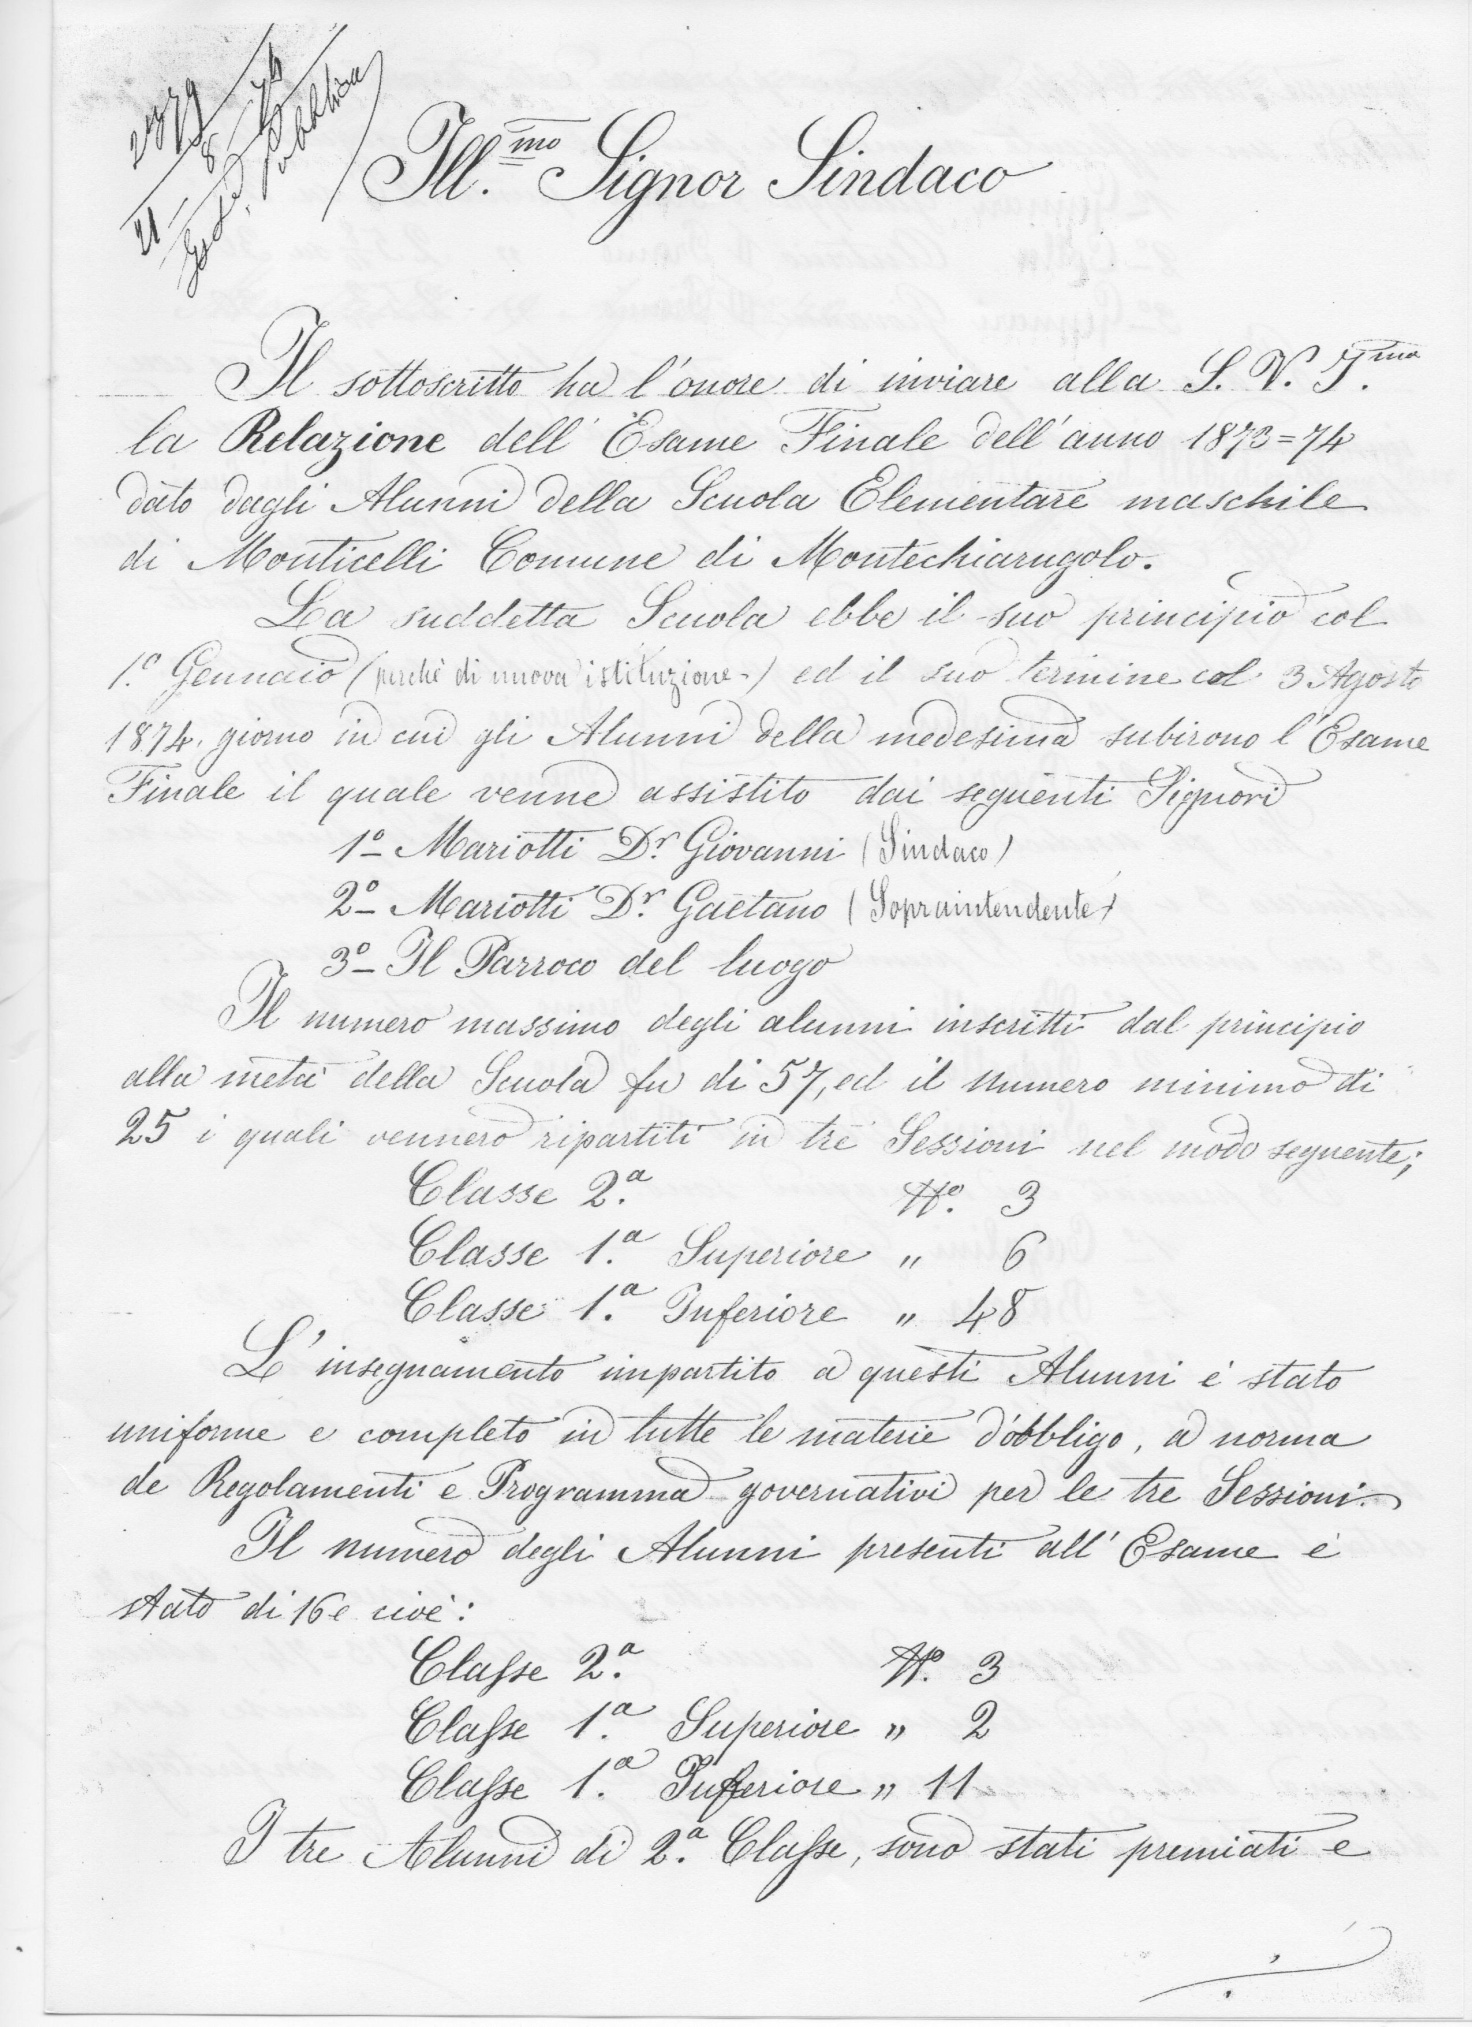 Ill.mo Signor Sindaco
Il sottoscritto ha l'onore di inviare alla S. V. I.ma
la Relazione dell'Esame Finale dell'anno 1873=74
dato dagli Alunni della Scuola Elementare maschile
di Monticelli Comune di Montechiarugolo.
La suddetta Scuola ebbe il suo principio col
1.o Gennaio (perchè di nuova istituzione-) ed il suo termine col 3 Agosto
1874. giorno in cui gli Alunni della medesima subirono l'Esame
Finale il quale venne assistito dai seguenti Signori
1o- Mariotti Dr. Giovanni (Sindaco)
2o- Mariotti Dr. Gaetano (Sopraintendente)
3o- Il Parroco del luogo
Il numero massimo degli alunni inscritti dal principio
alla metà della Scuola fu di 57, ed il numero minimo di
25 i quali vennero ripartiti in tre Sessioni nel modo seguente;
Classe 2.a No. 3
Classe 1.a Superiore " 6
Classe 1.a Inferiore " 48
L'insegnamento impartito a questi Alunni è stato
uniforme e completo in tutte le materie d'obbligo, a norma
de Regolamenti e Programma governativi per le tre Sessioni.
Il numero degli Alunni presenti all'Esame è
stato di 16 e cioè:
Classe 2.a No. 3
Classe 1.a Superiore " 2
Classe 1.a Inferiore " 11
I tre Alunni di 2.a Classe, sono stati premiati e